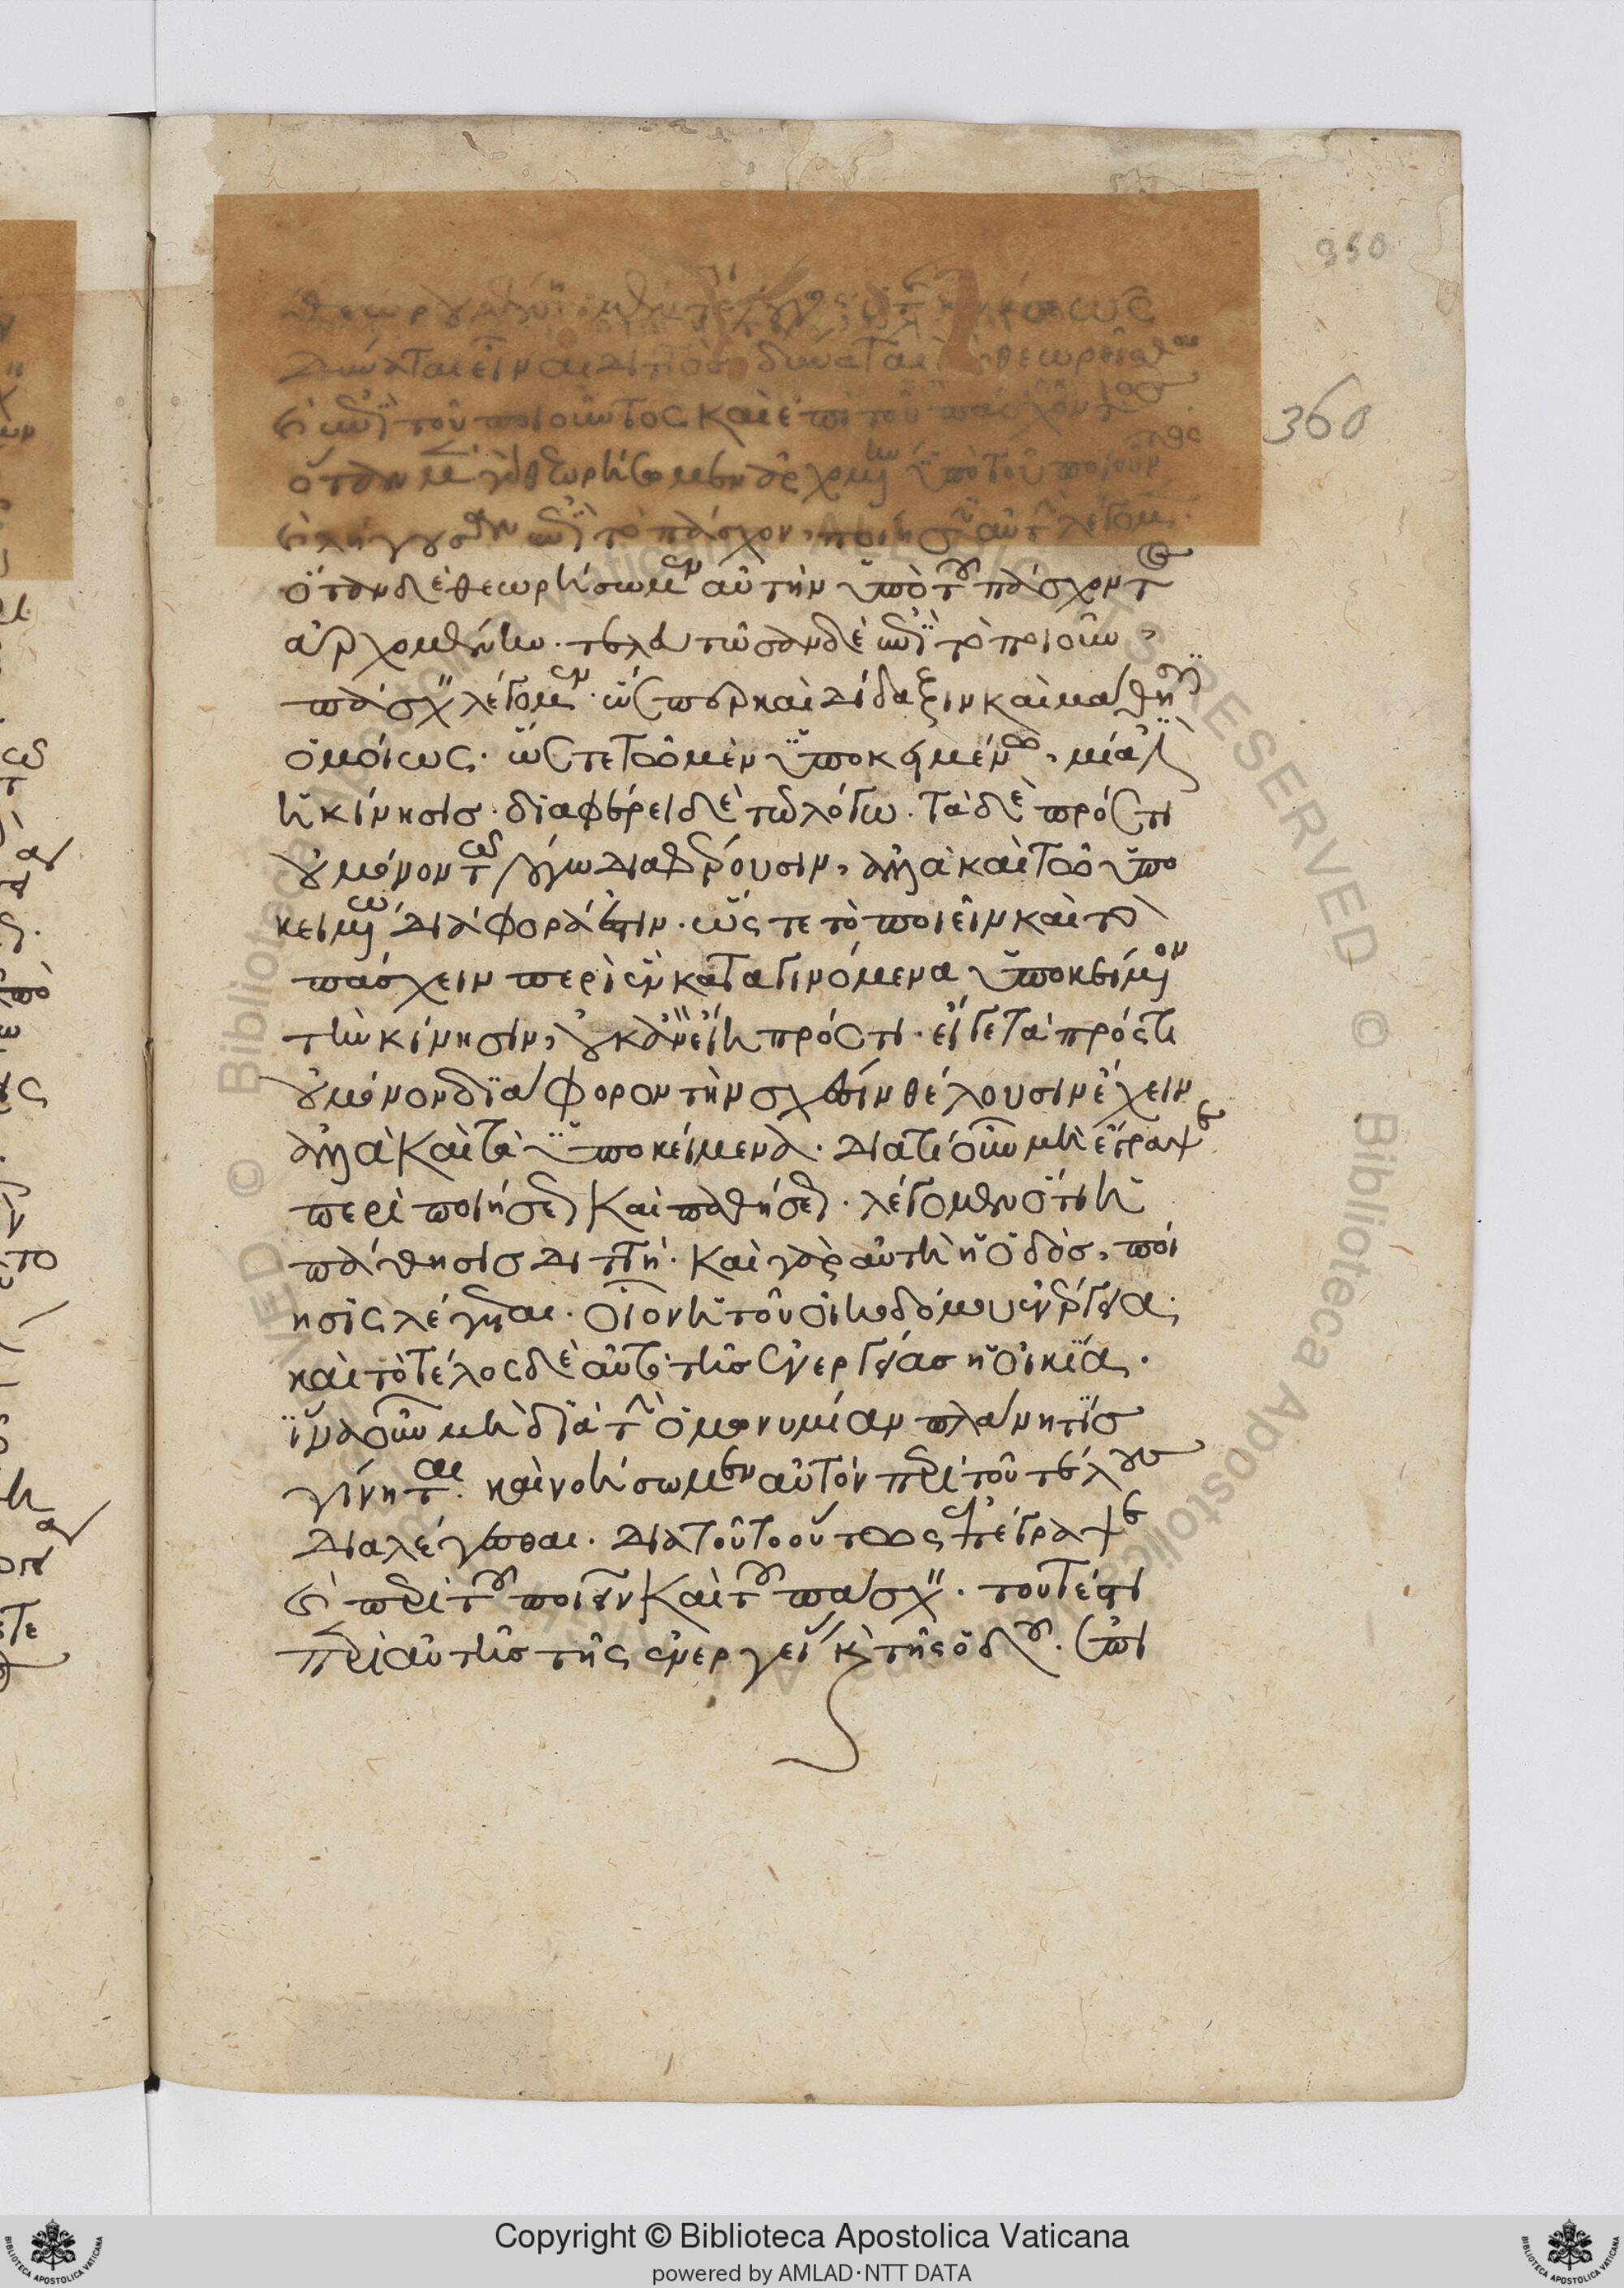 360
350
δύναται εἶναι διττὸς δύναται θεωρεῖσθαι
ἐπὶ τοῦ ποιοῦντος καὶ ἐπὶ τοῦ πάσχοντος
ὅταν μὲν γὰρ θεωρήσωμεν ἀρχομένην ὑπὸ τοῦ ποιοῦντος
ἐπὶ τὸ πάσχον, ποίησιν αὐτὴν λέγομεν.
ὅταν δὲ θεωρήσωμεν αὐτὴν ὑπὸ τοῦ πάσχοντος
ἀρχομένην. τελευτῶσαν δὲ ἐπὶ τὸ ποιοῦν,
πάσχειν λέγομεν. ὥσπερ καὶ δίδαξιν καὶ μάθησιν
ὁμοίως. ὥστε τῶ μὲν ὑποκειμένω, μία ἐστὶν
ἡ κίνησις. διαφέρει δὲ τῶ λόγω. τὰ δὲ πρός τι
οὐ μόνον τῶ λόγω διαφέρουσιν, ἀλλὰ καὶ τῶ ὑπο
κειμένω διάφορά ἐστιν. ὥς τε τὸ ποιεῖν καὶ τὸ
πάσχειν περὶ ἓν καταγινόμενα ὑποκείμενον
τὴν κίνησιν, οὐκ ἂν εἴη πρός τι. εἴγε τὰ πρός τι
οὐ μόνον διάφορον τὴν σχέσιν θέλουσιν ἔχειν
ἀλλὰ καὶ τὰ ὑποκείμενα. διατί οὖν μὴ ἔγραψε
περὶ ποιήσεως καὶ παθήσεως. λέγομεν ὅτι ἡ
πάθησις διττή. καὶ γὰρ αὐτὴ ἡ ὁδὸς, ποί
ησις λέγεται. οἷον ἡ τοῦ οἰκοδόμου ἐνέργεια.
καὶ τὸ τέλος δὲ αὐτὸ τῆς ἐνεργείας ἡ οἰκία.
ἵνα οὖν μὴ διὰ τὴν ὁμωνυμίαν πλάνη τίς
γένηται. καὶ νοήσωμεν αὐτὸν περὶ τοῦ τέλους
διαλέγεσθαι. διὰ τοῦτο οὕτως ἐπέγραψε
περὶ τοῦ ποιεῖν καὶ τοῦ πάσχειν. τουτέστι
περὶ αὐτῆς τῆς ἐνεργείας καὶ τῆς ὁδοῦ.
Copyright © Biblioteca Apostolica Vaticana
powered by AMLAD·NTT DATA